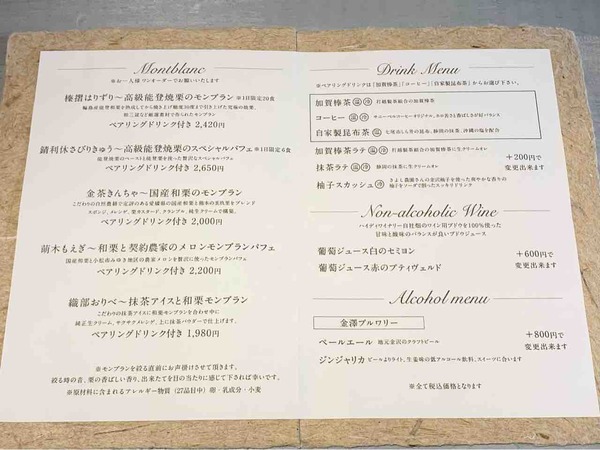 Montblanc
※お一人様 ワンオーダーでお願いいたします
榛摺はりずり～高級能登焼栗のモンブラン ※1日限定20食
ペアリングドリンク付き 2,420円
錆利休さびりきゅう～高級能登焼栗のスペシャルパフェ ※1日限定6食
能登焼栗のペーストと能登栗を使った贅沢なスペシャルパフェ
ペアリングドリンク付き 2,650円
金茶きんちゃ～国産和栗のモンブラン
こだわりの自然農耕で定評のある愛媛県の国産和栗と熊本の美四里をブレンド
スポンジ、メレンゲ、栗カスタード、クランブル、純生クリームで構築。
ペアリングドリンク付き 2,000円
萌木もえぎ～和栗と契約農家のメロンモンブランパフェ
国産和栗と小松市みゆき地区の農家メロンを贅沢に使ったモンブランパフェ
ペアリングドリンク付き 2,200円
織部おりべ～抹茶アイスと和栗モンブラン
こだわりの抹茶アイスに和栗モンブランを合わせ中に
純正生クリーム、サクサクメレンゲ、上に抹茶パウダーで仕上げます。
ペアリングドリンク付き 1,980円
※モンブランを絞る直前にお声掛けさせて頂きます。
絞る時の音、栗の香ばしい香り、出来たてを目の当たりに感じて下されば幸いです。
※原材料に含まれるアレルギー物質（27品目中）卵・乳成分・小麦
Drink Menu
※ペアリングドリンクは「加賀棒茶」「コーヒー」「自家製昆布茶」からお選び下さい。
加賀棒茶 温 冷 丸越製茶組合の加賀棒茶
コーヒー 温 冷
自家製昆布茶 温
加賀棒茶ラテ 温 冷
抹茶ラテ 温 冷 静岡の抹茶に生クリームオレ
柚子スカッシュ 冷
柚子をソーダで割ったスッキリドリンク
+200円で
変更出来ます
Non-alcoholic Wine
ハイディワイナリー自社畑のワイン用ブドウを100%使った
甘味と酸味のバランスが良いブドウジュース
葡萄ジュース白のセミヨン
葡萄ジュース赤のプティヴェルド
+600円で
変更出来ます
Alcohol menu
金澤ブルワリー
ペールエール 地元金沢のクラフトビール
ジンジャリカ ビールよりライト、生姜味の低アルコール飲料、スイーツに合います
+800円で
変更出来ます
※全て税込価格となります